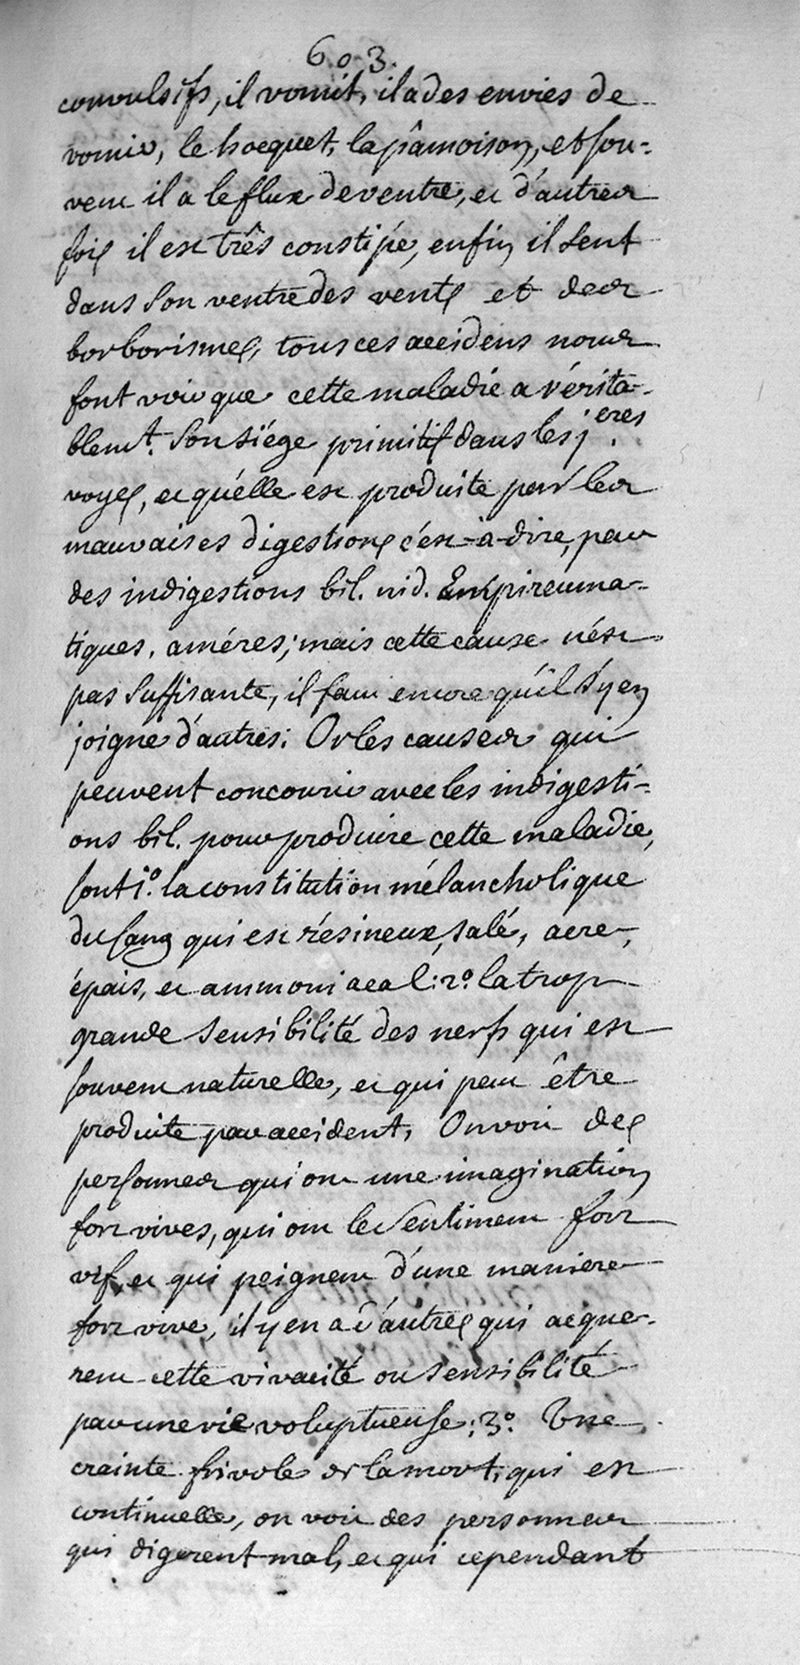 603.
convulsifs, il vomit, il a des envies de
vomir, le hocquet, la pâmoison, et sou=
vent il a le flux de ventre, et d'autres
fois il est très constipé, enfin il sent
dans son ventre des vents et des
borborismes, tous ces accidens nous
font voir que cette maladie a vérita-
blemt. son siége primitif dans les j.eres
voyes, et qu'elle est produite par les
mauvaises digestions c'est-à-dire, par
des indigestions bil. nid. Empireuma-
tiques, améres; mais cette cause n'est
pas suffisante, il faut encore qu'il s'y en
joigne d'autres: Or les causes qui
peuvent concourir avec les indigesti=
ons bil. pour produire cette maladie,
sont 1°. la constitution mélancholique
du sang qui est résineux, salé, acre,
épais, et ammoniacal: 2° la trop
grande sensibilité des nerfs qui est
souvent naturelle, et qui peut être
produite par accident, On voit des
personnes qui ont une imagination
fort vives, qui ont le sentiment fort
vif, et qui peignent d'une maniere
fort vive, il y en a d'autres qui acque-
rent cette vivacité ou sensibilité
par une vie voluptueuse: 3°. Une
crainte frivole de la mort, qui est
continuelle, on voit des personnes
qui digerent mal, et qui cependant